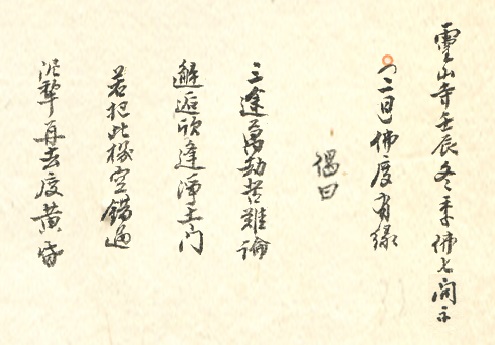 靈山寺壬辰冬季佛七開示
(二)佛度有緣
偈曰
三途萬劫苦難論
邂逅欣逢淨土门
若把此機空錯過
泥犂再去度黃昏